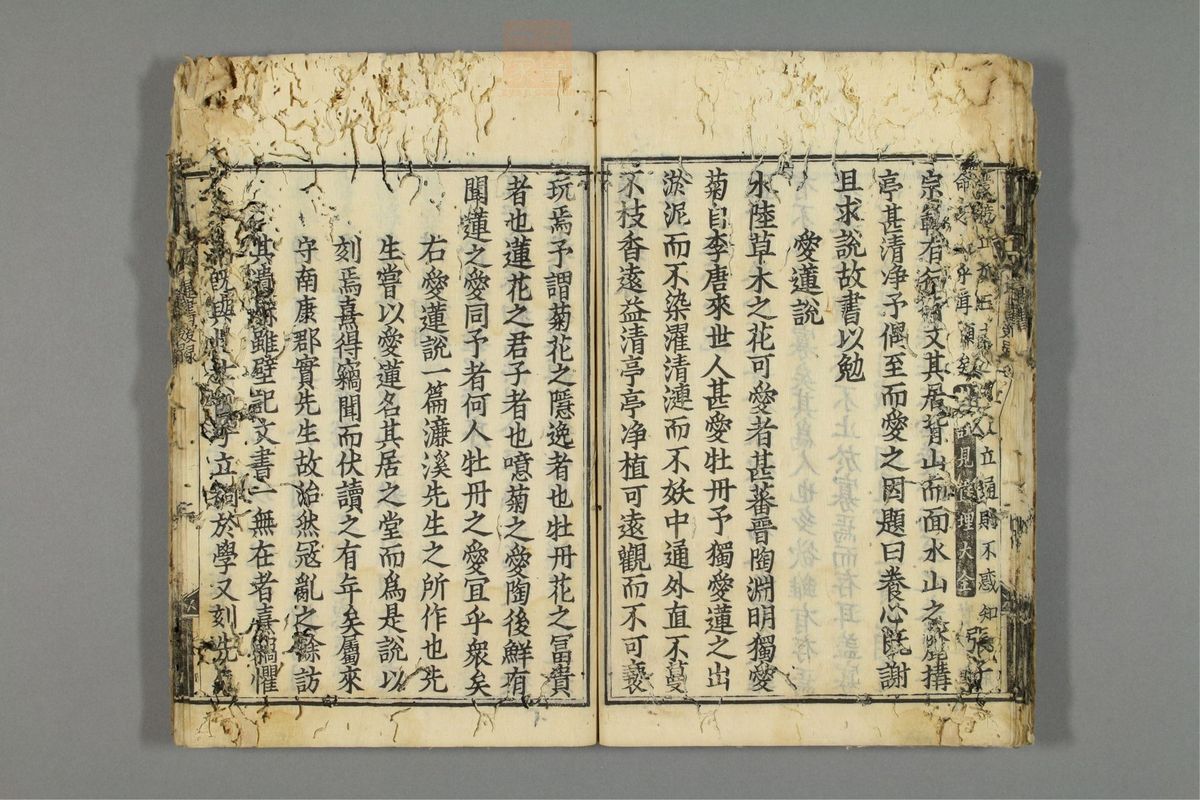 立通則不惑知
張子
見性理大全
宗範有行有文其居背山而面水山之麓搆
亭甚清净予偶至而愛之因題曰養心既謝
且求說故書以勉
愛蓮說
水陸草木之花可愛者甚蕃晉陶淵明獨愛
菊自李唐來世人甚愛牡丹予獨愛蓮之出
淤泥而不染濯清漣而不妖中通外直不蔓
不枝香遠益清亭亭净植可遠觀而不可褻
玩焉予謂菊花之隱逸者也牡丹花之冨貴
者也蓮花之君子者也噫菊之愛陶後鮮有
聞蓮之愛同予者何人牡丹之愛宜乎衆矣
右愛蓮說一篇濂溪先生之所作也先
生嘗以愛蓮名其居之堂而爲是說以
刻焉熹得竊聞而伏讀之有年矣屬來
守南康郡實先生故治然冦亂之餘訪
其遺雖壁記文書一無在者熹竊懼
既與立祠於學又刻先